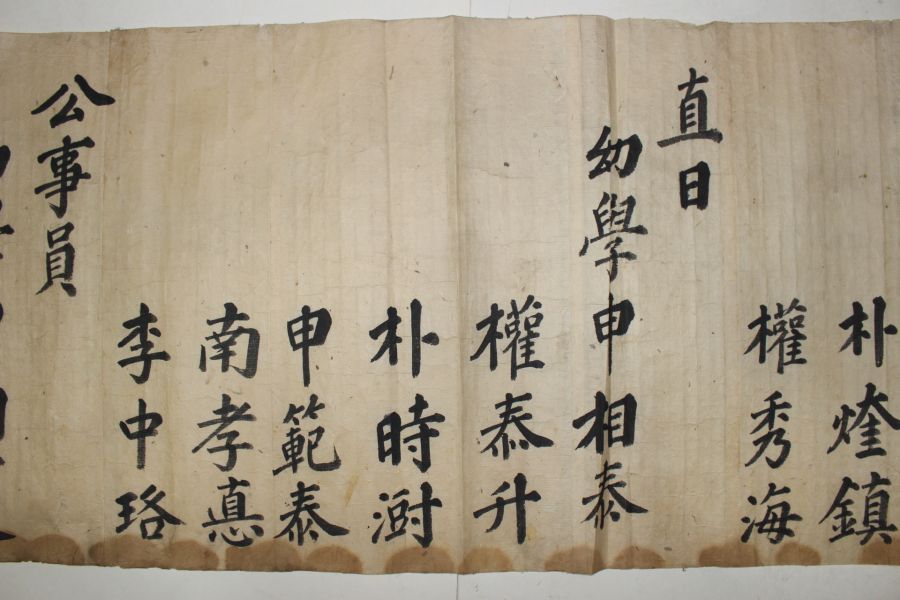 朴烇鎮
權秀海
直日
幼學申相泰
權泰升
朴時澍
申範泰
南孝悳
李中珞
公事員